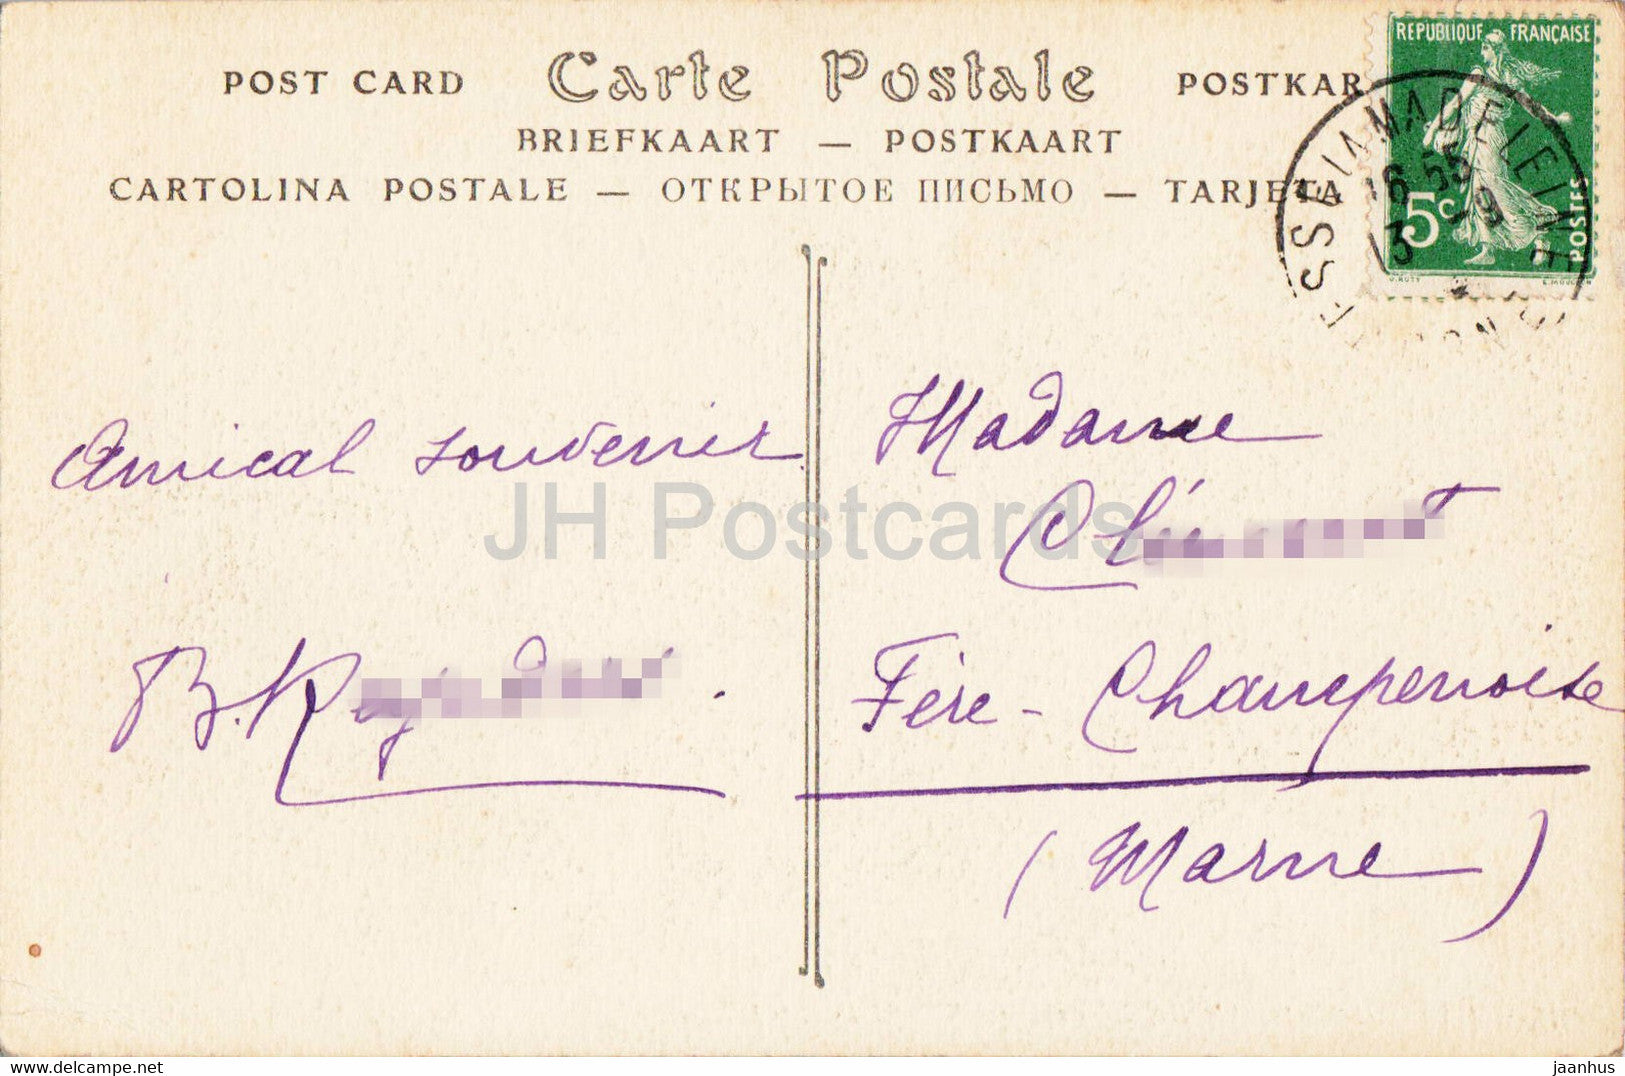 POST CARD Carte Postale POSTKAR
BRIEFKAART — POSTKAART
CARTOLINA POSTALE — ОТКРЫТОЕ ПИСЬМО — TARJETA
REPUBLIQUE FRANÇAISE
5c
POSTES
16 55
13
Amical souvenir
B.
Madame
Fère-Champenoise
(Marne)
JH Postcards
delcampe.net
jaanhus